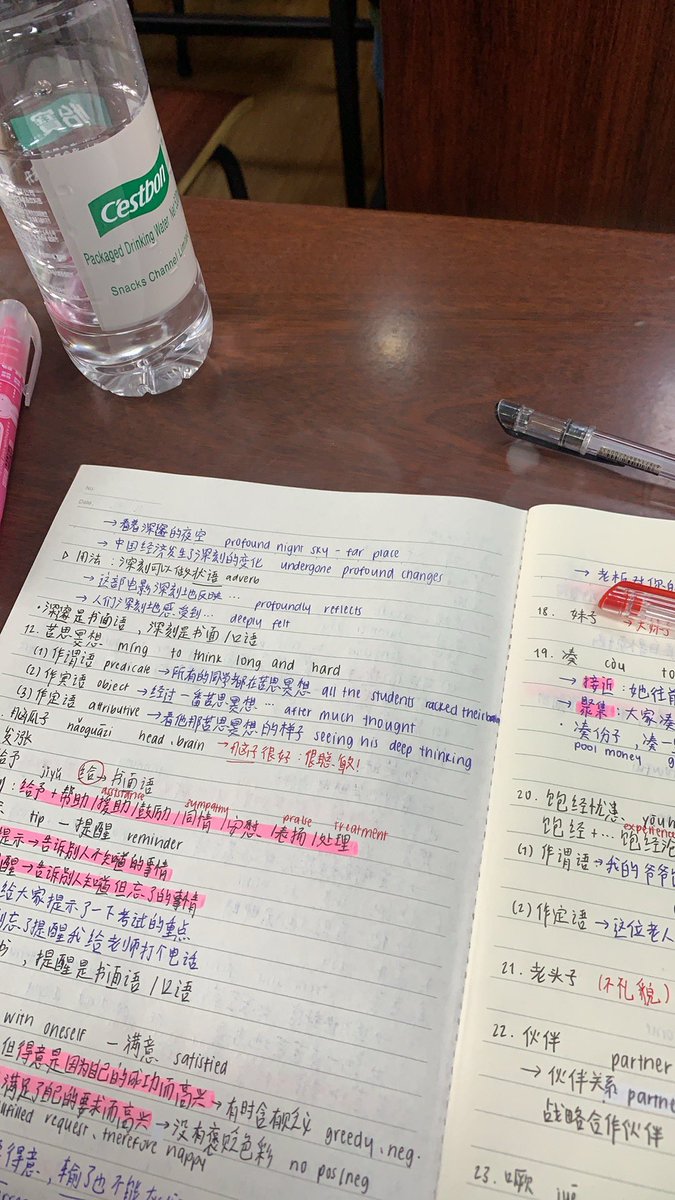 怡寶
C'estbon
Packaged Drinking Water Net
Snacks Channel
No.
Date
→ 看着深邃的夜空 profound night sky - far place
→ 中国经济发生了深刻的变化 undergone profound changes
▷ 用法：深刻可以做状语 adverb
→ 这部电影深刻地反映 … profoundly reflects
→ 人们深刻地感受到 … deeply felt
· 深邃是书面语，深刻是书面/口语
12. 苦思冥想 míng to think long and hard
(1) 作谓语 predicate → 所有的同学都在苦思冥想 all the students racked their brain
(2) 作宾语 object → 经过一番苦思冥想 … after much thought
(3) 作定语 attributive → 看他那苦思冥想的样子 seeing his deep thinking
脑瓜子 nǎoguāzi head, brain → 脑子很好, 很聪敏!
发涨
给予 jǐyǔ 给 → 书面语
assistance sympathy praise treatment
: 给予 + 帮助 / 援助 / 鼓励 / 同情 / 安慰 / 表扬 / 处理
tip — 提醒 reminder
提示 → 告诉别人不知道的事情
醒 → 告诉别人知道但忘了的事情
给大家提示了一下考试的重点
别忘了提醒我给老师打个电话
书，提醒是书面语 / 口语
with oneself — 满意 satisfied
但得意是因为自己的成功而高兴 → 有时含有贬义 greedy, neg.
满足了自己的要求而高兴 → 没有褒贬色彩 no pos/neg
fulfilled request, therefore happy
得意，输了也不能
→ 老板对你的
18. 妹子 →
19. 凑 còu to
→ 接近：她往前
→ 聚集：大家凑
· 凑份子，凑一
pool money
20. 饱经忧患
experience
饱经 + … 饱经沧
(1) 作谓语 → 我的爷爷
(2) 作定语 → 这位老人
21. 老头子 (不礼貌)
22. 伙伴 partner
→ 伙伴关系 partne
战略合作伙伴
23. 撅 juē